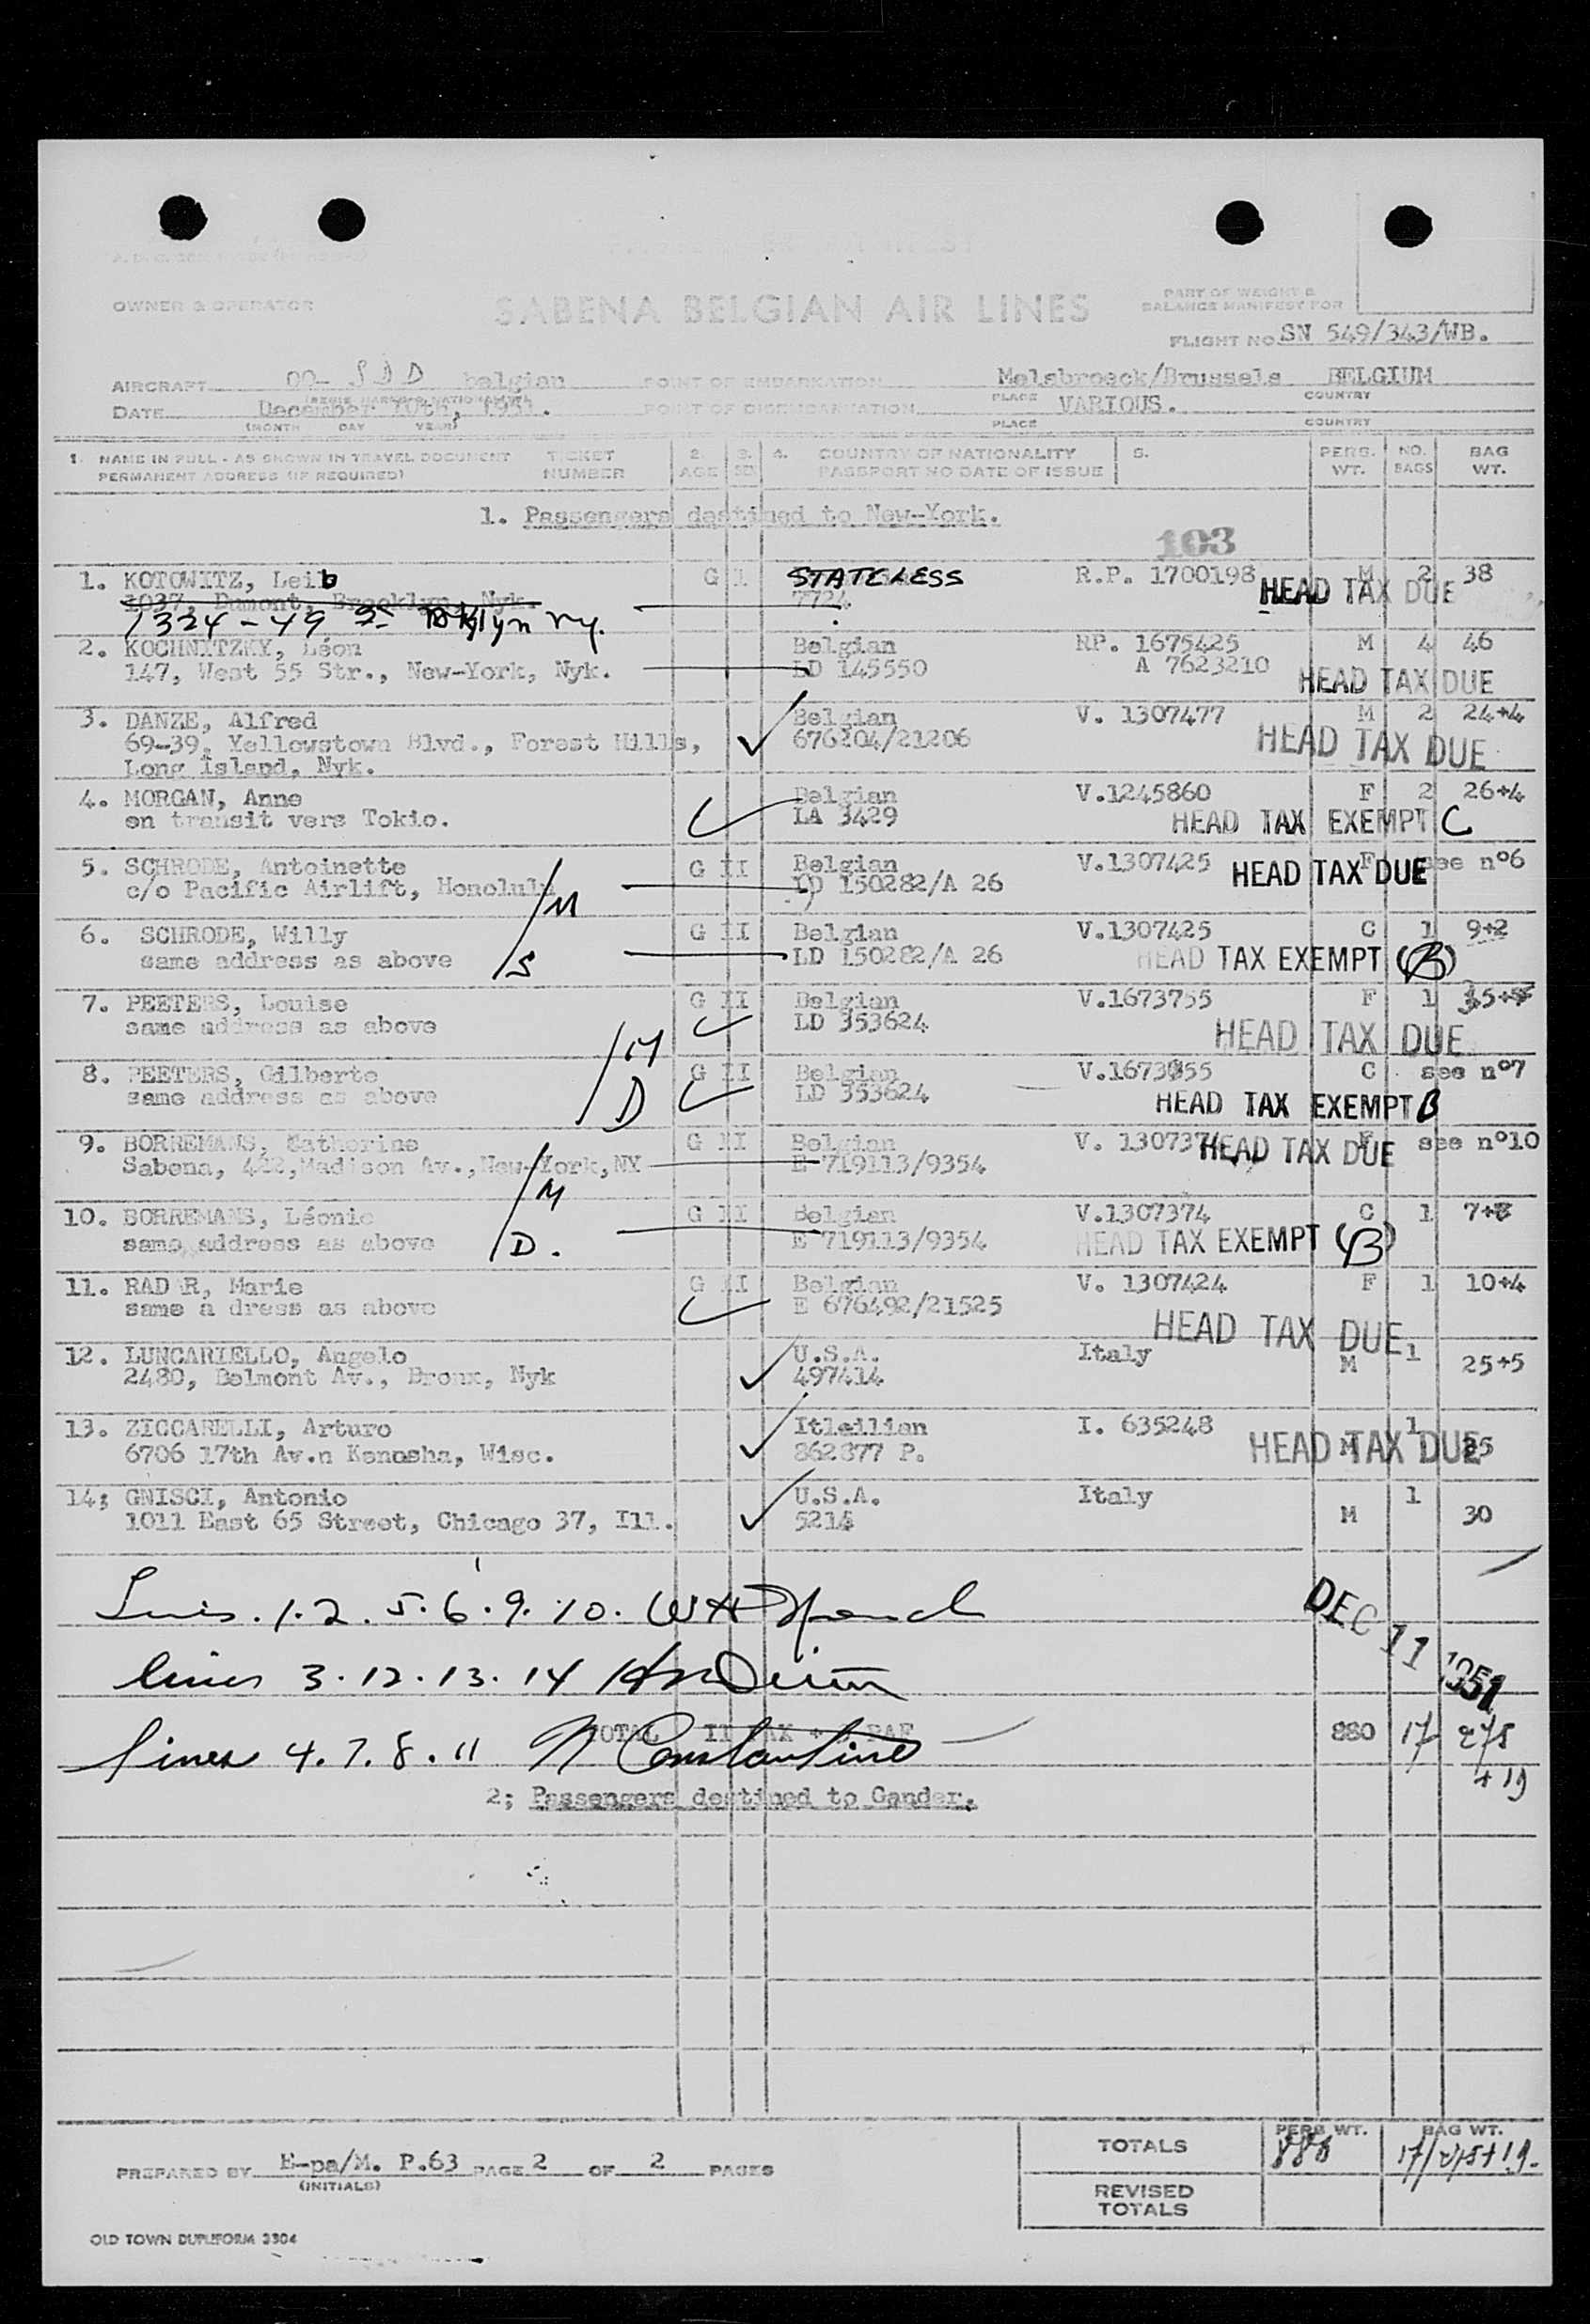 OWNER & OPERATOR
SABENA BELGIAN AIR LINES
PART OF WEIGHT &
BALANCE MANIFEST FOR
FLIGHT NO SN 549/343/WB.
AIRCRAFT OO- belgian POINT OF EMBARKATION Melsbroeck/Brussels BELGIUM
PLACE COUNTRY
DATE December 10th, 1951. POINT OF DISEMBARKATION VARIOUS.
(MONTH DAY YEAR) PLACE COUNTRY
1. NAME IN FULL - AS SHOWN IN TRAVEL DOCUMENT TICKET 2. 3. 4. COUNTRY OF NATIONALITY 5. PERS. NO. BAG
PERMANENT ADDRESS (IF REQUIRED) NUMBER AGE SEX PASSPORT NO DATE OF ISSUE WT. BAGS WT.
1. Passengers destined to New-York.
103
1. KOTOWITZ, Leib G I STATELESS R.P. 1700198 M 2 38
1037, Dumont, Brooklyn, Nyk. 7724 HEAD TAX DUE
1324-49 St Bklyn ny.
2. KOCHNITZKY, Léon Belgian RP. 1675425 M 4 46
147, West 55 Str., New-York, Nyk. LD 145550 A 7623210 HEAD TAX DUE
3. DANZE, Alfred Belgian V. 1307477 M 2 24+4
69-39, Yellowstown Blvd., Forest Hills, ✓ 676204/21206 HEAD TAX DUE
Long Island, Nyk.
4. MORGAN, Anne Belgian V.1245860 F 2 26+4
en transit vers Tokio. ✓ LA 3429 HEAD TAX EXEMPT C
5. SCHRODE, Antoinette G II Belgian V.1307425 HEAD TAX DUE F see n°6
c/o Pacific Airlift, Honolulu /M LD 150282/A 26
6. SCHRODE, Willy G II Belgian V.1307425 C 1 9+2
same address as above /S LD 150282/A 26 HEAD TAX EXEMPT (B)
7. PEETERS, Louise G II Belgian V.1673755 F 1
same address as above ✓ LD 353624 HEAD TAX DUE
/M
8. PEETERS, Gilberte G II Belgian C see n°7
same address as above D ✓ LD 353624 HEAD TAX EXEMPT B
9. BORREMANS, Catherine G II Belgian V. 1307374 HEAD TAX DUE F see n°10
Sabena, 422,Madison Av.,New-York,NY E 719113/9354
/M
10. BORREMANS, Léonie G II Belgian V.1307374 C 1
same address as above /D. E 719113/9354 HEAD TAX EXEMPT (B)
11. RAD R, Marie G II Belgian V. 1307424 F 1 10+4
same a dress as above ✓ E 676492/21525 HEAD TAX DUE
12. LUNCARIELLO, Angelo U.S.A. Italy M 1 25+5
2480, Belmont Av., Bronx, Nyk ✓ 497414
13. ZICCARELLI, Arturo Itleilian I. 635248 M 1
6706 17th Av.n Kenosha, Wisc. ✓ 862877 P. HEAD TAX DUE
14; GNISCI, Antonio U.S.A. Italy M 1 30
1011 East 65 Street, Chicago 37, Ill. ✓
1.2.5.6.9.10.
DEC 11 1951
lines 3.12.13.14
TOTAL 880 17 275
lines 4.7.8.11 N Constantine + 19
2; Passengers destined to Gander.
PREPARED BY E-pa/M. P.63 PAGE 2 OF 2 PAGES
(INITIALS)
TOTALS PERS WT. BAG WT.
17/275+19.
REVISED
TOTALS
OLD TOWN DUPLIFORM 3304